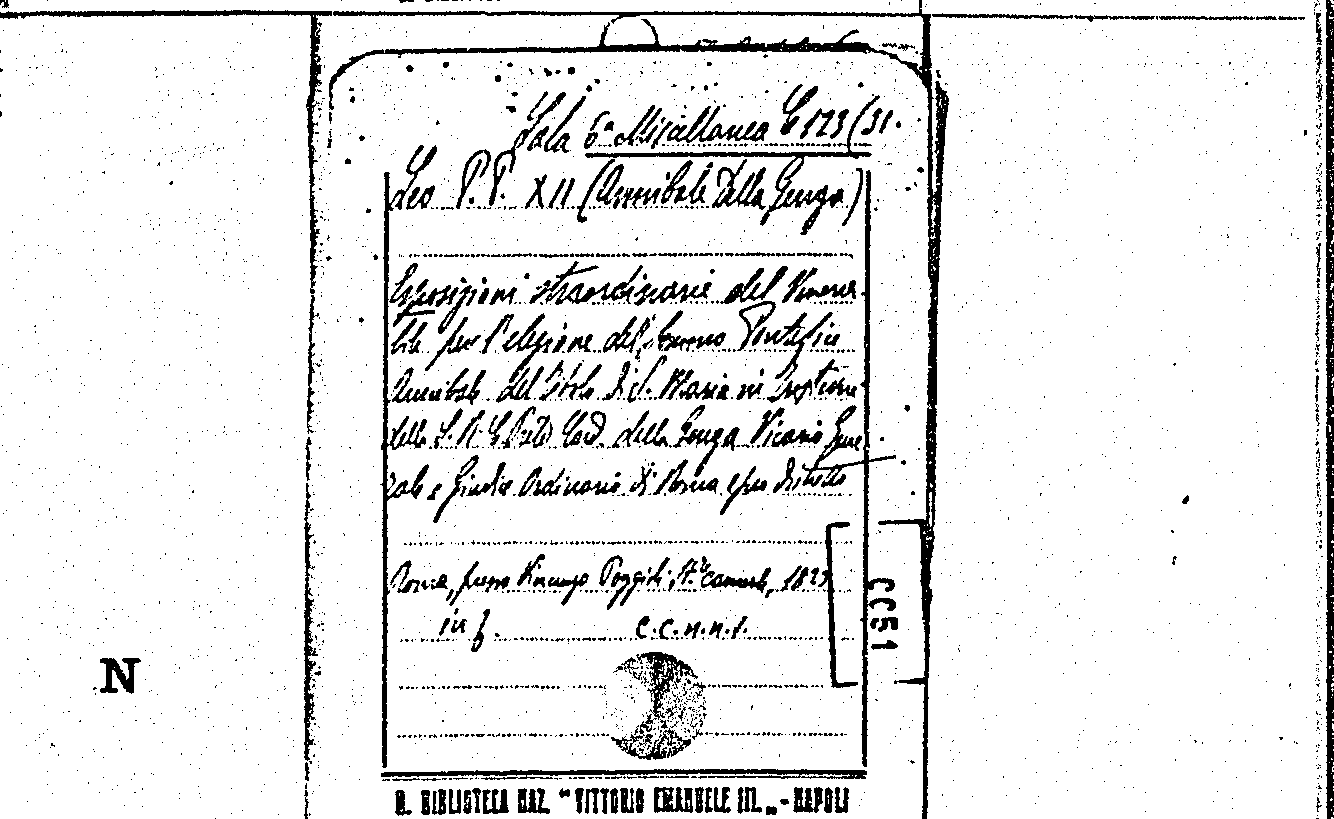 Sala 6ª Miscellanea C 123 (31.
Leo P.P. XII (Annibale Della Genga)
Esposizioni straordinarie del Venera-
bile per l'elezione del Sommo Pontefice
Annibale del Titolo di S. Maria in
della S. R. C. Prete Card. della Genga Vicario Gene-
rale e Giudice Ordinario di Roma e suo Distretto
Roma, presso Vincenzo Poggioli, camerale, 1823
in f. c.c.n.n.1.
CC51
N
R. BIBLIOTECA NAZ. "VITTORIO EMANUELE III." - NAPOLI